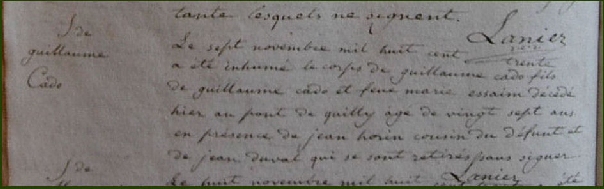 tante lesquels ne signent.
Lanier
S de
guillaume
Cado
Le sept novembre mil huit cent trente
a été inhumé le corps de guillaume cado fils
de guillaume cado et feue marie essaim décédé
hier au pont de quilly age de vingt sept ans
en présence de jean horin cousin du défunt et
de jean duval qui se sont retirés sans signer.
Lanier
S de
Le huit novembre mil huit cent